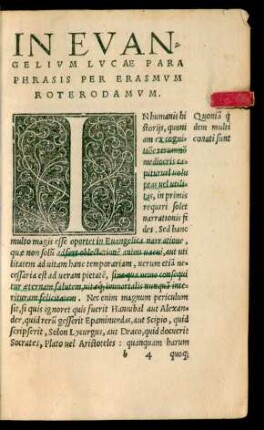 IN EVAN-
GELIVM LVCAE PARA
PHRASIS PER ERASMVM
ROTERODAMVM.
IN humanis hi
storijs, quoni
am ex cognitione rerum non
mediocris ca-
pitur uel uolu
ptas uel utili-
tas, in primis
requiri solet
narrationis fi
des. Sed hanc
Quoniã q̃
dem multi
conati sunt
multo magis esse oportet in Euangelica narratione,
quæ non solũ adfert oblectationẽ animi uacui, aut uti
litatem ad uitam hanc temporariam, uerum etiã ne-
cessaria est ad ueram pietatẽ, sine qua nemo consequi
tur æternam salutem, ut atq; immortalis nunquã inte
rituram felicitatem. Nec enim magnum periculum
sit, si quis ignoret quis fuerit Hannibal aut Alexan-
der, quid rerũ gesserit Epaminundas, aut Scipio, quid
scripserit, Solon Lycurgus, aut Draco, quid docuerit
Socrates, Plato uel Aristoteles: quanquam harum
b 4 quoq;